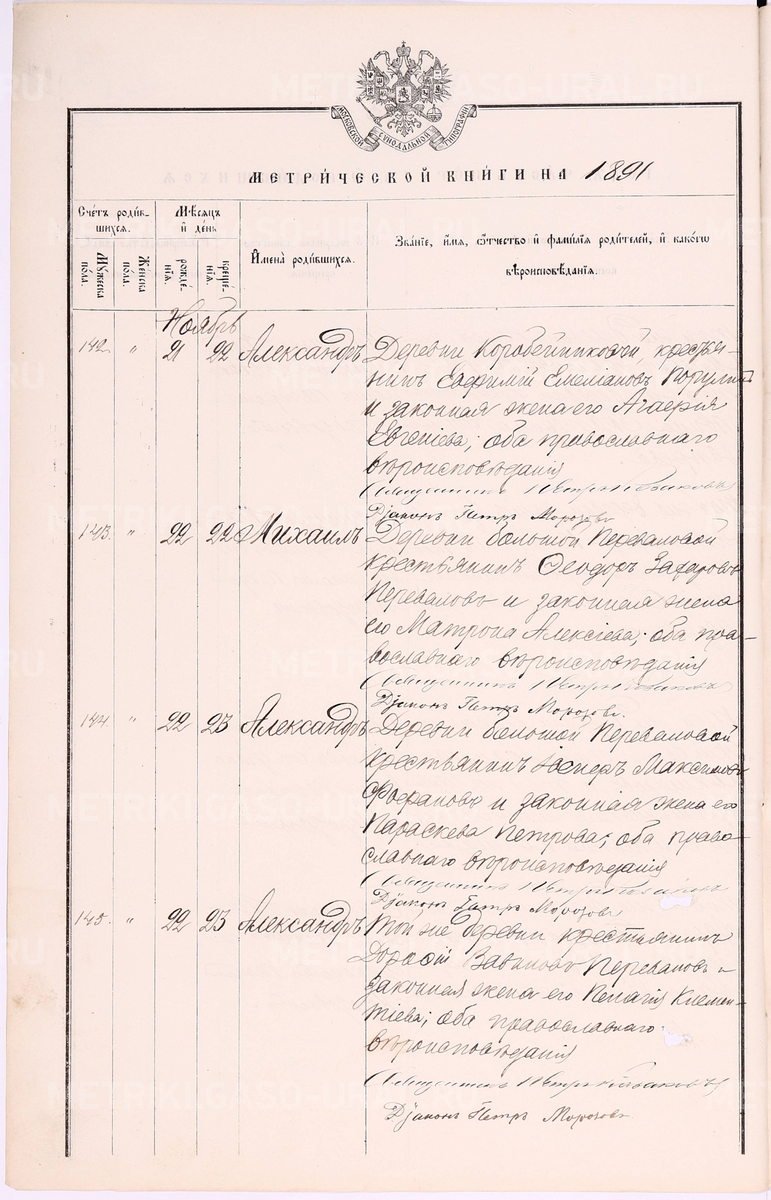 МОСКОВСКОЙ СУНОДАЛЬНОЙ ТИПОГРАФІИ
МЕТРИ́ЧЕСКОЙ КНИ́ГИ НА 1891
Сче́тъ роди́вшихся.
Мѣ́сяцъ и́ де́нь
И҆мена̀ роди́вшихся.
Зва́нїе, и҆́мѧ, ѻ҆́тчество и҆ фами́лїѧ роди́телей, и҆ како́гѡ вѣроисповѣ́данїѧ.
Му́жеска по́ла.
Же́нска по́ла.
рожде́нїѧ.
креще́нїѧ.
Ноябрь
142. " 21 22 Александръ Деревни Коробейниковой крестья-
нинъ Евфимій Емеліановъ
и законная жена его
Евгеніева; оба православнаго
вѣроисповѣданія
Священникъ Петръ
Діаконъ Петръ Морозовъ
143. " 22 22 Михаилъ Деревни большой Переваловой
крестьянинъ Ѳеодоръ Захаровъ
Переваловъ и законная жена
его Матрона Алексіева; оба пра-
вославнаго вѣроисповѣданія
Священникъ Петръ
Діаконъ Петръ Морозовъ.
144 " 22 23 Александръ Деревни большой Переваловой
крестьянинъ Максимовъ
и законная жена его
Параскева Петрова; оба право-
славнаго вѣроисповѣданія
Священникъ Петръ
Діаконъ Петръ Морозовъ
145. " 22 23 Александръ Той же деревни крестьянинъ
Дорофій Переваловъ и
законная жена его Пелагія Климен-
тіева; оба православнаго
вѣроисповѣданія
Священникъ Петръ
Діаконъ Петръ Морозовъ